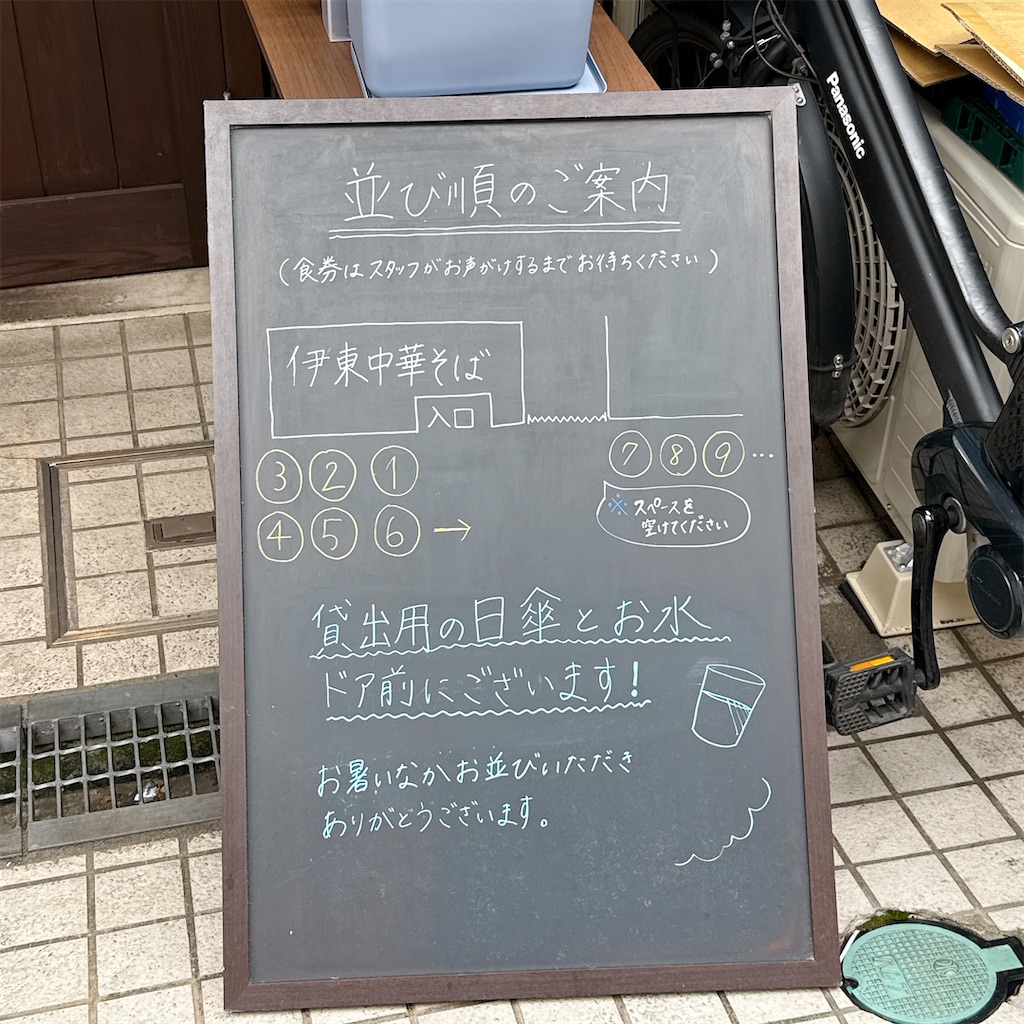 並び順のご案内
(食券はスタッフがお声がけするまでお待ちください)
伊東中華そば
入口
③ ② ①
④ ⑤ ⑥ →
⑦ ⑧ ⑨ …
※ スペースを
空けてください
貸出用の日傘とお水
ドア前にございます!
お暑いなかお並びいただき
ありがとうございます。
Panasonic